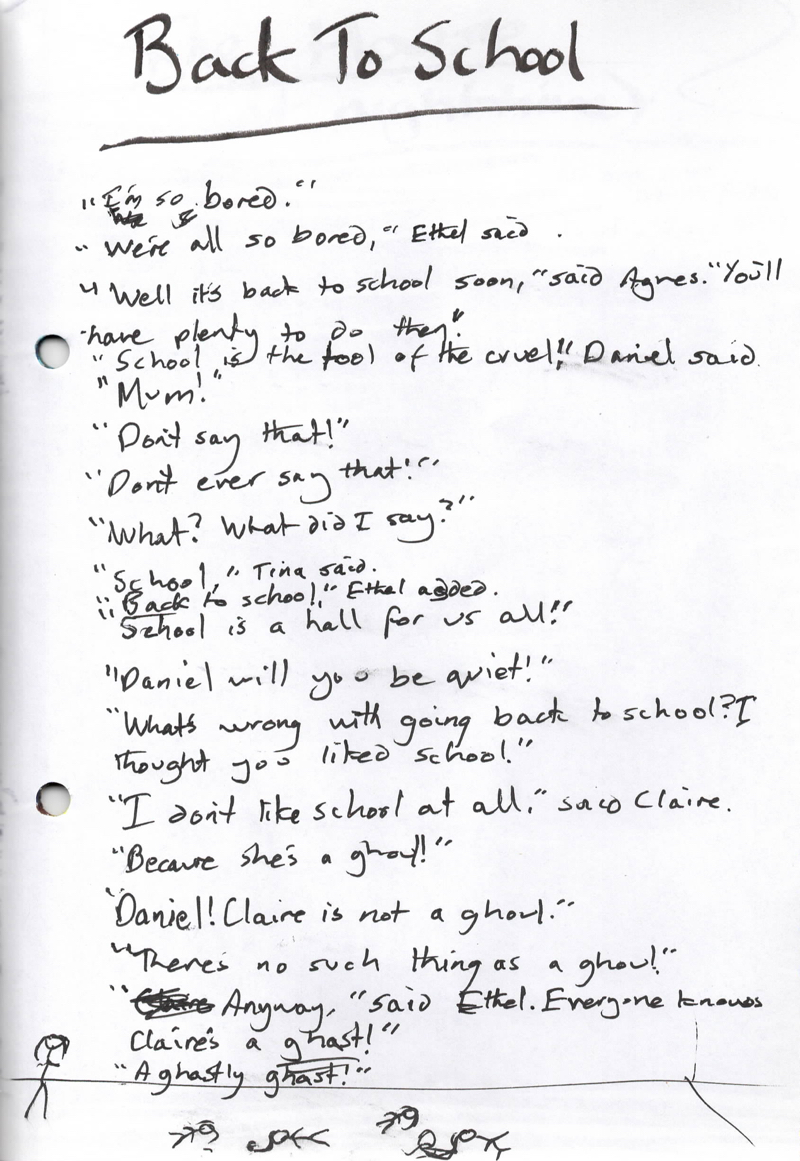 Back To School
"I'm so bored."
"We're all so bored," Ethel said.
"Well it's back to school soon," said Agnes. "You'll
have plenty to do then."
"School is the tool of the cruel!" Daniel said.
"Mum!"
"Don't say that!"
"Don't ever say that!"
"What? What did I say?"
"School," Tina said.
"Back to school," Ethel added.
"School is a hall for us all!"
"Daniel will you be quiet!"
"What's wrong with going back to school? I
thought you liked school."
"I don't like school at all," said Claire.
"Because she's a ghoul!"
"Daniel! Claire is not a ghoul."
"There's no such thing as a ghoul."
"Anyway," said Ethel. Everyone knows
Claire's a ghast!"
"A ghastly ghast!"